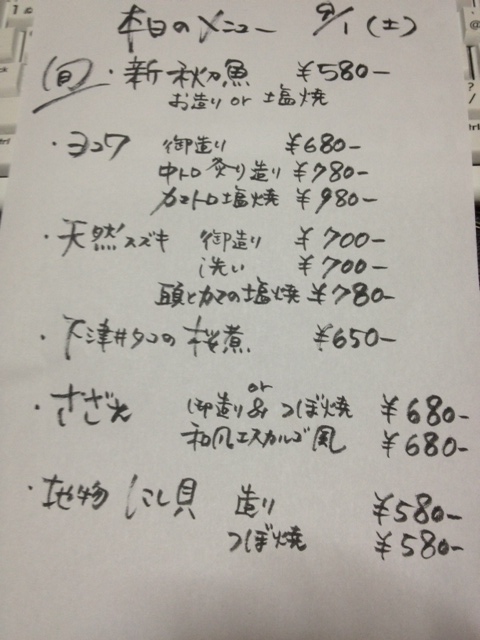 本日のメニュー 9/1(土)
(旬)・新秋刀魚 ¥580-
お造り or 塩焼
・ヨコワ 御造り ¥680-
中トロ 炙り造り ¥780-
カマトロ塩焼 ¥980-
・天然スズキ 御造り ¥700-
洗い ¥700-
頭とカマの塩焼 ¥780-
・下津井タコの桜煮 ¥650-
・さざえ 御造り or つぼ焼 ¥680-
和風エスカルゴ風 ¥680-
・地物 にし貝 造り ¥580-
つぼ焼 ¥580-